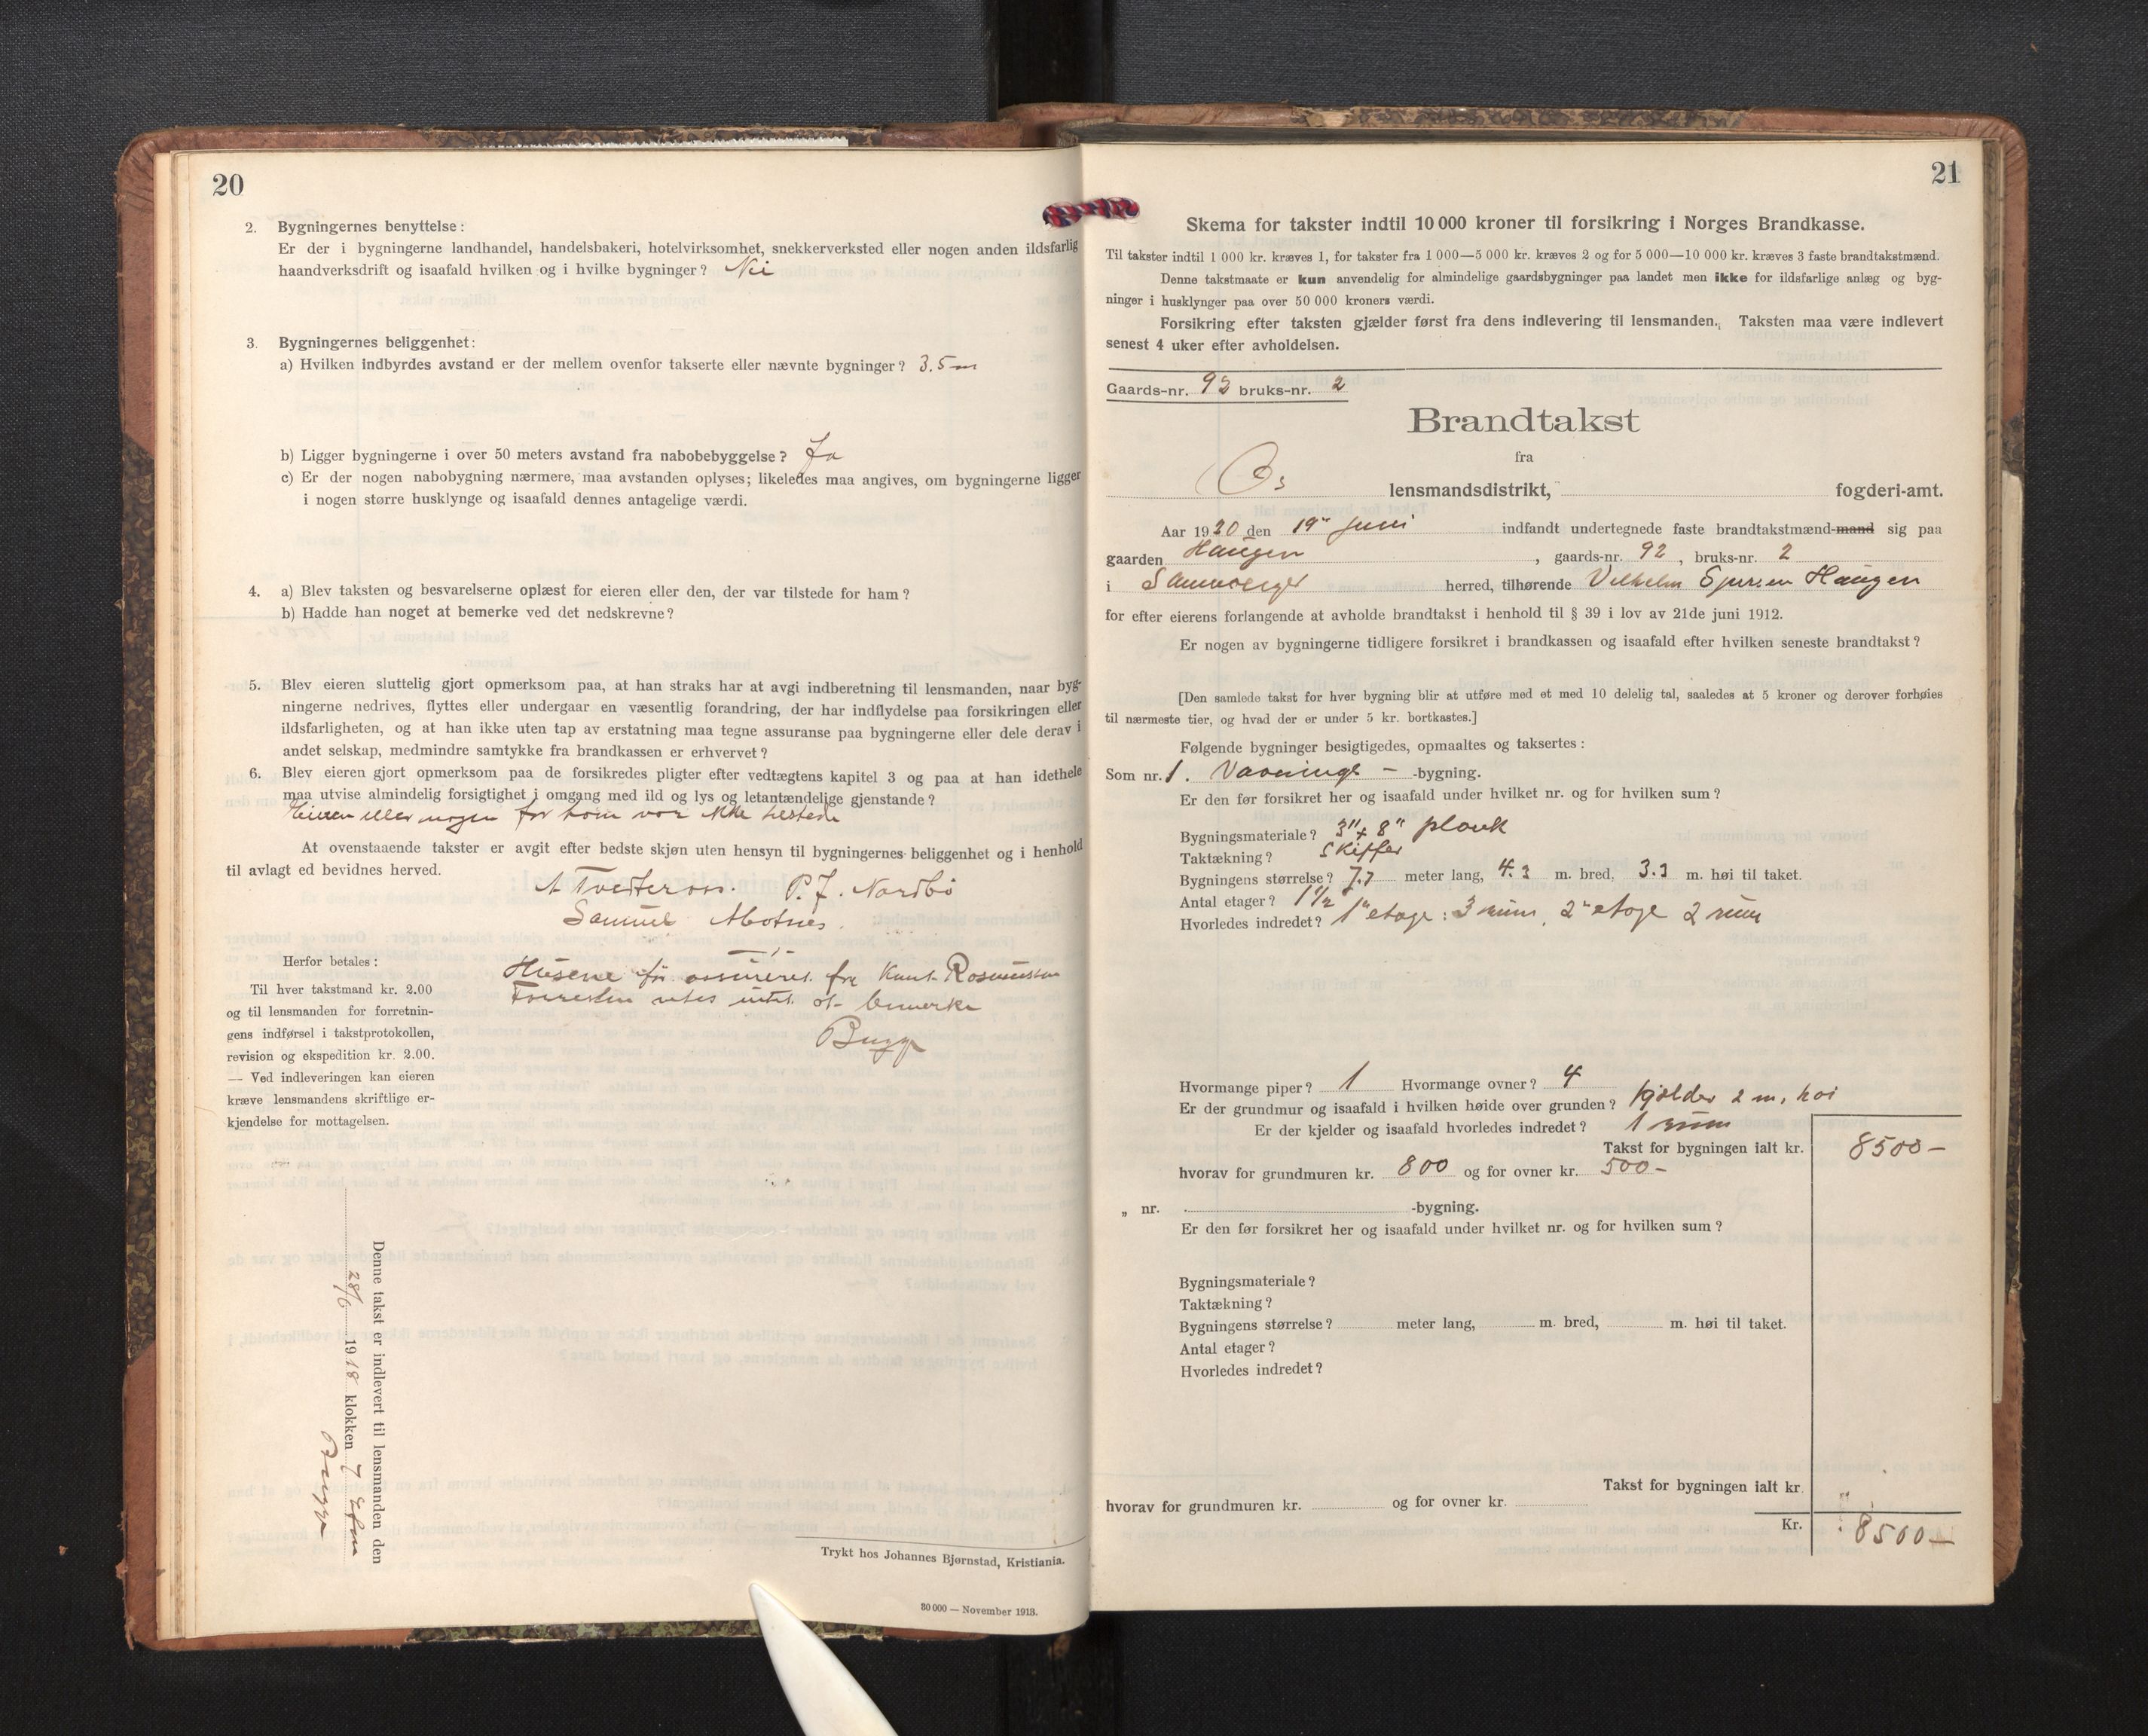 20
2. Bygningernes benyttelse:
Er der i bygningerne landhandel, handelsbakeri, hotelvirksomhet, snekkerverksted eller nogen anden ildsfarlig
haandverksdrift og isaafald hvilken og i hvilke bygninger? Nei
3. Bygningernes beliggenhet:
a) Hvilken indbyrdes avstand er der mellem ovenfor takserte eller nævnte bygninger? 3.5 m
b) Ligger bygningerne i over 50 meters avstand fra nabobebyggelse? Ja
c) Er der nogen nabobygning nærmere, maa avstanden oplyses; likeledes maa angives, om bygningerne ligger
i nogen større husklynge og isaafald dennes antagelige værdi.
4. a) Blev taksten og besvarelserne oplæst for eieren eller den, der var tilstede for ham?
b) Hadde han noget at bemerke ved det nedskrevne?
5. Blev eieren sluttelig gjort opmerksom paa, at han straks har at avgi indberetning til lensmanden, naar byg-
ningerne nedrives, flyttes eller undergaar en væsentlig forandring, der har indflydelse paa forsikringen eller
ildsfarligheten, og at han ikke uten tap av erstatning maa tegne assuranse paa bygningerne eller dele derav i
andet selskap, medmindre samtykke fra brandkassen er erhvervet?
6. Blev eieren gjort opmerksom paa de forsikredes pligter efter vedtægtens kapitel 3 og paa at han idethele
maa utvise almindelig forsigtighet i omgang med ild og lys og letantændelige gjenstande?
Eieren eller nogen for ham var ikke tilstede
At ovenstaaende takster er avgit efter bedste skjøn uten hensyn til bygningernes beliggenhet og i henhold
til avlagt ed bevidnes herved.
P. J. Nordbö
Samuel
Herfor betales:
Til hver takstmand kr. 2.00
og til lensmanden for forretnin-
gens indførsel i takstprotokollen,
revision og ekspedition kr. 2.00.
— Ved indleveringen kan eieren
kræve lensmandens skriftlige er-
kjendelse for mottagelsen.
Husene før assureret fra Knut Rasmussen
Forresten intet at bemerke
Bugge
Denne takst er indlevert til lensmanden den
28/6 1918 klokken 7
Bugge
Trykt hos Johannes Bjørnstad, Kristiania.
30 000 — November 1913.
21
Skema for takster indtil 10 000 kroner til forsikring i Norges Brandkasse.
Til takster indtil 1 000 kr. kræves 1, for takster fra 1 000—5 000 kr. kræves 2 og for 5 000—10 000 kr. kræves 3 faste brandtakstmænd.
Denne takstmaate er kun anvendelig for almindelige gaardsbygninger paa landet men ikke for ildsfarlige anlæg og byg-
ninger i husklynger paa over 50 000 kroners værdi.
Forsikring efter taksten gjælder først fra dens indlevering til lensmanden. Taksten maa være indlevert
senest 4 uker efter avholdelsen.
Gaards-nr. 92 bruks-nr. 2
Brandtakst
fra
Os lensmandsdistrikt, fogderi-amt.
Aar 1920 den 19 juni indfandt undertegnede faste brandtakstmænd-mand sig paa
gaarden Haugen, gaards-nr. 92, bruks-nr. 2
i Samnanger herred, tilhørende Vilhelm Haugen
for efter eierens forlangende at avholde brandtakst i henhold til § 39 i lov av 21de juni 1912.
Er nogen av bygningerne tidligere forsikret i brandkassen og isaafald efter hvilken seneste brandtakst?
[Den samlede takst for hver bygning blir at utføre med et med 10 delelig tal, saaledes at 5 kroner og derover forhøies
til nærmeste tier, og hvad der er under 5 kr. bortkastes.]
Følgende bygninger besigtigedes, opmaaltes og taksertes:
Som nr. 1. Vaanings- -bygning.
Er den før forsikret her og isaafald under hvilket nr. og for hvilken sum?
Bygningsmateriale? 3" x 8" plank
Taktækning? Skiffer
Bygningens størrelse? 7.7 meter lang, 4.3 m. bred, 3.3 m. høi til taket.
Antal etager? 1 1/2
Hvorledes indredet? 1" etage: 3 rum, 2" etage 2 rum
Hvormange piper? 1 Hvormange ovner? 4
Er der grundmur og isaafald i hvilken høide over grunden? Kjelder 2 m. høi
Er der kjelder og isaafald hvorledes indredet? 1 rum
Takst for bygningen ialt kr. 8500-
hvorav for grundmuren kr. 800 og for ovner kr. 500-
„ nr. -bygning.
Er den før forsikret her og isaafald under hvilket nr. og for hvilken sum?
Bygningsmateriale?
Taktækning?
Bygningens størrelse? meter lang, m. bred, m. høi til taket.
Antal etager?
Hvorledes indredet?
Takst for bygningen ialt kr.
hvorav for grundmuren kr. og for ovner kr.
Kr. 8500-